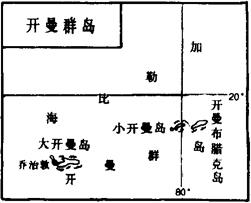 开曼群岛
加
勒
比
海
20°
大开曼岛
乔治敦
小开曼岛
开曼布腊克岛
开
曼
群
岛
80°